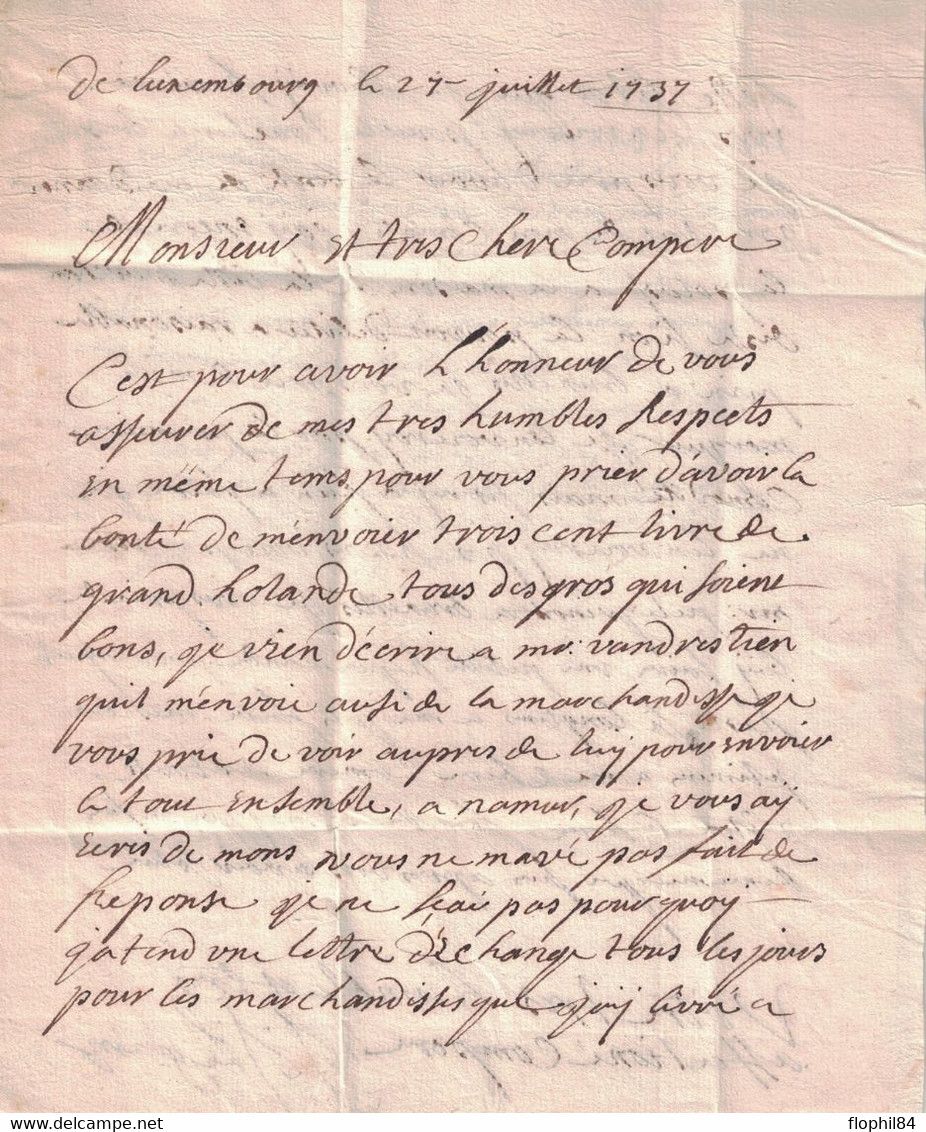 de luxembourg le 27 juillet 1737
Monsieur Et tres Chere Compere
C'est pour avoir L'honneur de vous
asseurer de mes tres humbles Respects
En même tems pour vous prier d'avoir la
bonté de m'envoier trois cent livre de
grand holande tous des gros qui soient
bons, je vien d'écrire a mr. vandrestien
quil m'envoie ausi de la marchandisse je
vous prie de voir aupres de luy pour envoier
le tout Ensemble, a namur, je vous aÿ
Ecris de mons vous ne mavé pas fait de
Reponse je ne sçai pas pourquoy
j'atend une lettre d'Echange tous les jours
pour les marchandisses que j'aÿ livré a
www.delcampe.net
flophil84